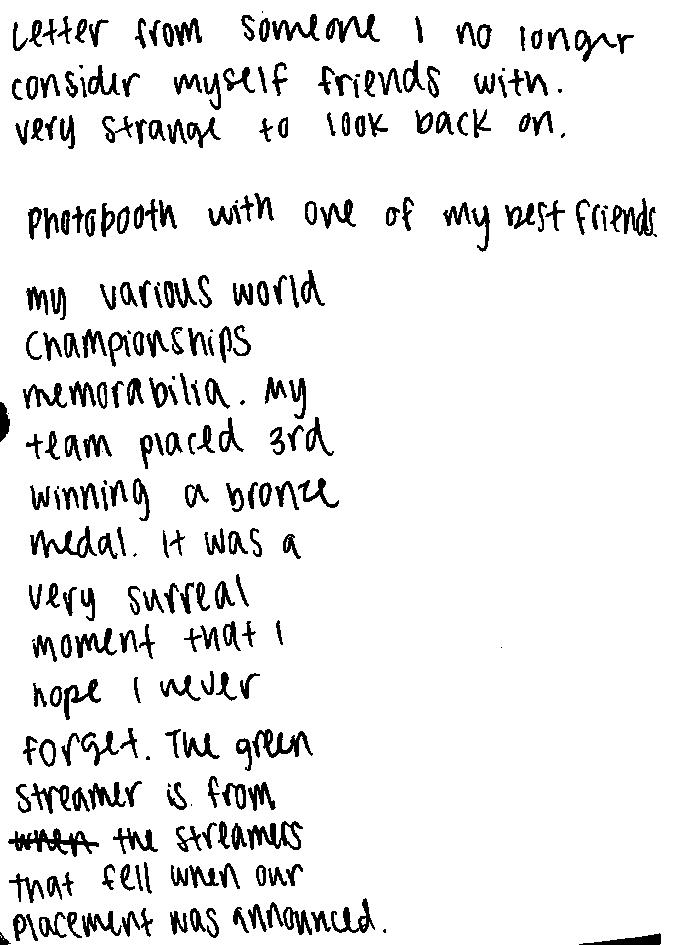 Letter from someone I no longer
consider myself friends with.
very strange to look back on.
Photobooth with one of my best friends.
my various world
championships
memorabilia. My
team placed 3rd
winning a bronze
medal. It was a
very surreal
moment that I
hope I never
forget. The green
streamer is from
when the streamers
that fell when our
placement was announced.